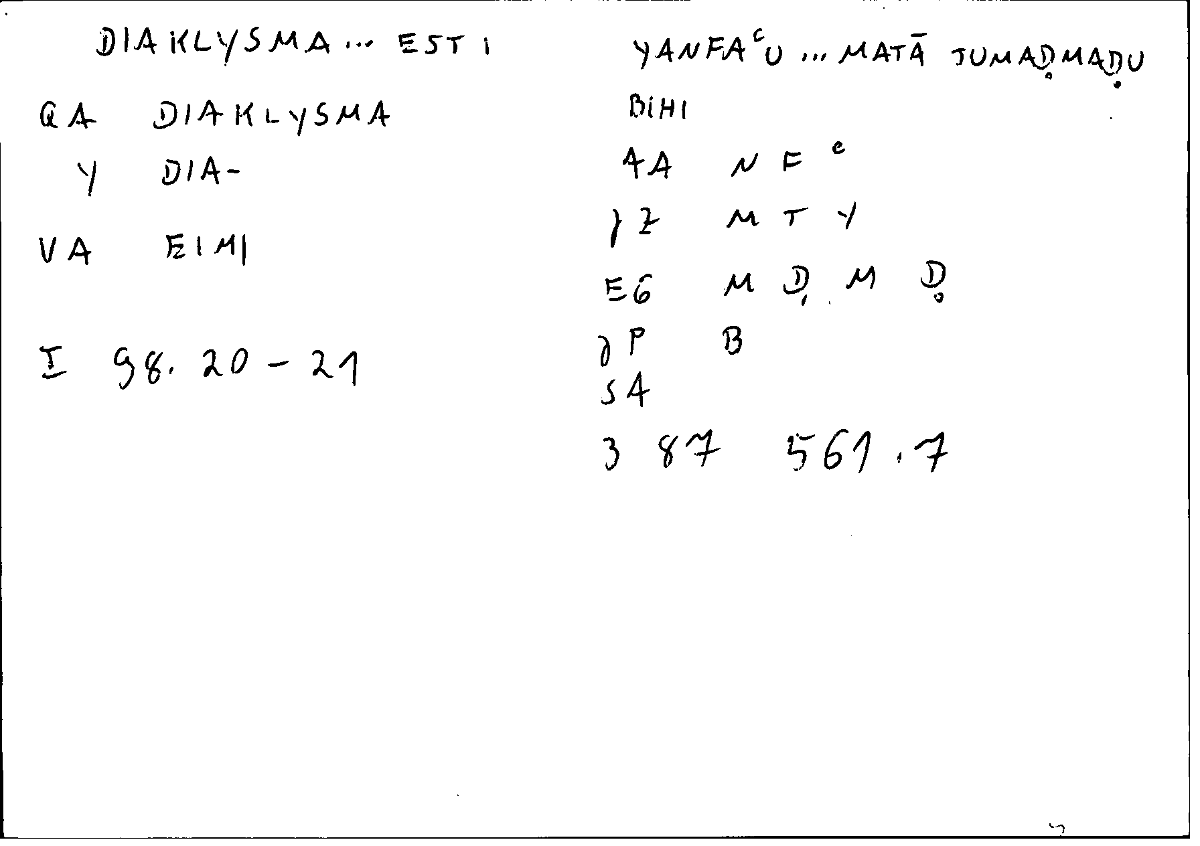 DIAKLYSMA ... ESTI
QA DIAKLYSMA
Y DIA-
VA EIMI
I 98. 20 - 21
YANFAᶜU ... MATĀ JUMAḌMAḌU
BIHI
4A N F ᶜ
Z M T Y
EG M Ḍ M Ḍ
P B
SA
3 87 561.7